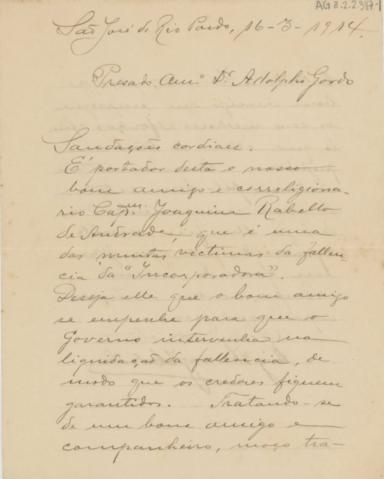 AG 8.2.2387-1
São José do Rio Pardo, 16-3-1914.
Presado Amº Dr. Adolpho Gordo
Saudações cordiaes.
É portador desta o nosso
bom amigo e correligiona-
rio Joaquim Rabello
de Andrade, que é uma
das muitas victimas da fallen-
cia da "Incorporadora".
Deseja elle que o bom amigo
se empenhe para que o
Governo intervenha na
liquidação da fallencia, de
modo que os credores fiquem
garantidos. Tratando-se
de um bom amigo e
companheiro, moço tra-